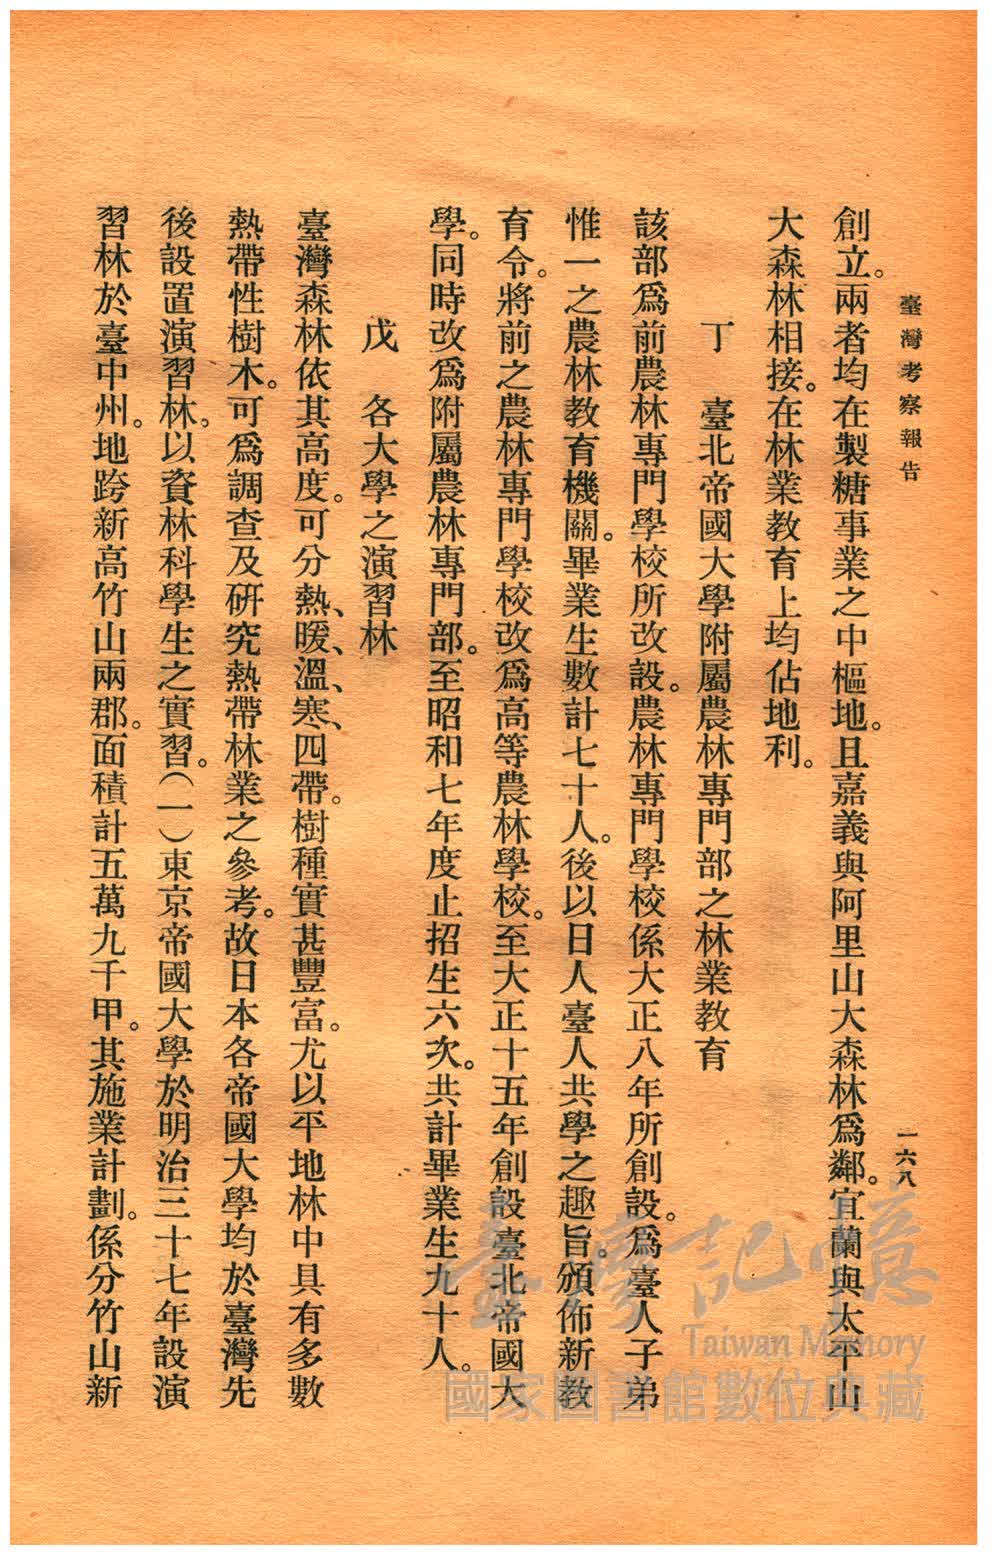 臺灣考察報告
一六八
創立。兩者均在製糖事業之中樞地。且嘉義與阿里山大森林爲鄰。宜蘭與太平山
大森林相接。在林業教育上均佔地利。
丁　臺北帝國大學附屬農林專門部之林業教育
該部爲前農林專門學校所改設。農林專門學校係大正八年所創設。爲臺人子弟
惟一之農林教育機關。畢業生數計七十人。後以日人臺人共學之趣旨。頒佈新教
育令。將前之農林專門學校改爲高等農林學校。至大正十五年創設臺北帝國大
學。同時改爲附屬農林專門部。至昭和七年度止招生六次。共計畢業生九十人。
戊　各大學之演習林
臺灣森林依其高度。可分熱、暖、溫、寒、四帶。樹種實甚豐富。尤以平地林中具有多數
熱帶性樹木。可爲調查及研究熱帶林業之參考。故日本各帝國大學均於臺灣先
後設置演習林。以資林科學生之實習。(一)東京帝國大學於明治三十七年設演
習林於臺中州。地跨新高竹山兩郡。面積計五萬九千甲。其施業計劃。係分竹山新
臺灣記憶
Taiwan Memory
國家圖書館數位典藏